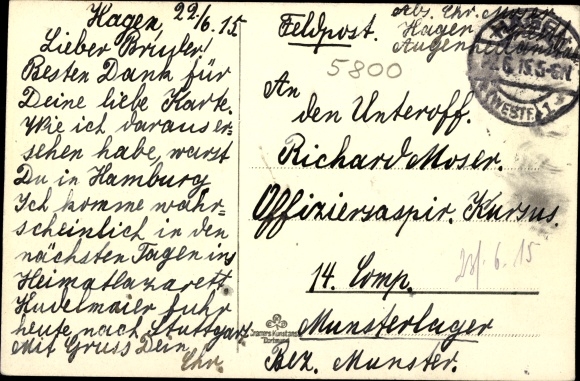 Hagen 22/6.15
Lieber Bruder!
Besten Dank für
Deine liebe Karte.
Wie ich daraus er=
sehen habe, warst
Du in Hamburg
Ich komme wahr=
scheinlich in den
nächsten Tagen ins
Heimatlazarett
Hudelmaier fuhr
heute nach Stuttgart
Mit Gruss Dein
Chr.
Feldpost.
Abs. Chr. Moser
Hagen
Augenheilanstalt
5800
(WESTF.) 1
An
den Unteroff.
Richard Moser.
Offiziersaspir. Kursus.
23/.6.15
14. Comp.
Munsterlager
Bez. Munster.
Cramers Kunstanstalt
Dortmund